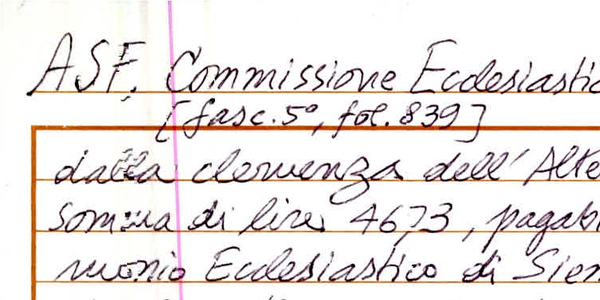 ASF, Commissione Ecclesiastic
[fasc. 5º, fol. 839]
dalla clemenza dell'Alte
somma di lire 4673, pagab
monio Ecclesiastico di Sien